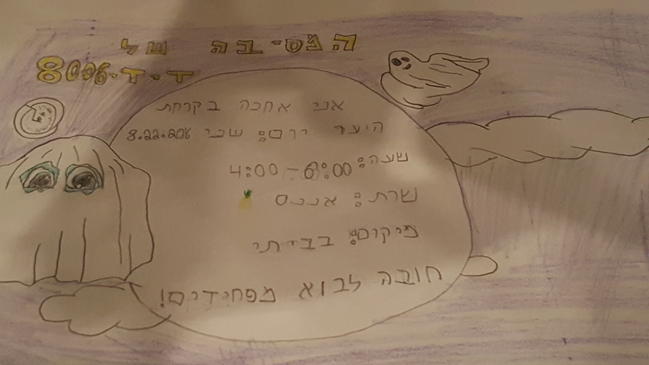 המסיבה של
ד.ד.8006
אני אחכה בקרחת
היער יום: שני 8.22.206
שעה: 4:00-6:00
שרת: אננס
מיקום: בביתי
חובה לבוא מפחידים!